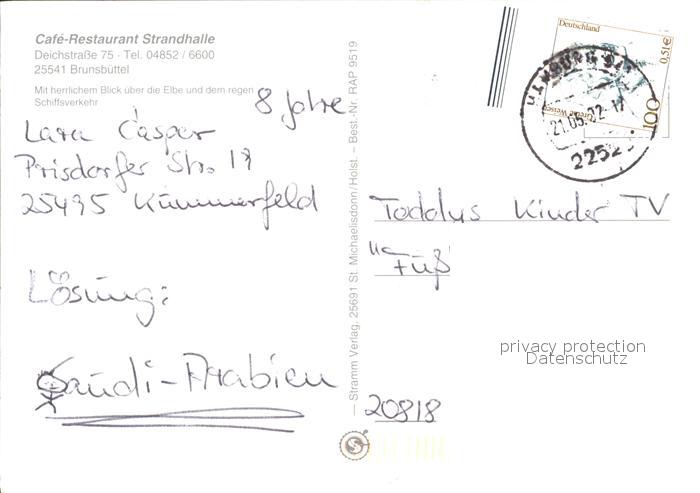 Café-Restaurant Strandhalle
Deichstraße 75 · Tel. 04852 / 6600
25541 Brunsbüttel
Mit herrlichem Blick über die Elbe und dem regen
Schiffsverkehr
8 Jahre
Lara Casper
Prisdorfer Str. 19
25495 Kummerfeld
Lösung:
Saudi-Arabien
— Stramm Verlag, 25691 St. Michaelisdonn/Holst. — Best.-Nr. RAP 9519
Deutschland
0,51€
100
Grethe Weiser
21.05.02
2252
Toddys Kinder TV
"Fuß
20818
privacy protection
Datenschutz